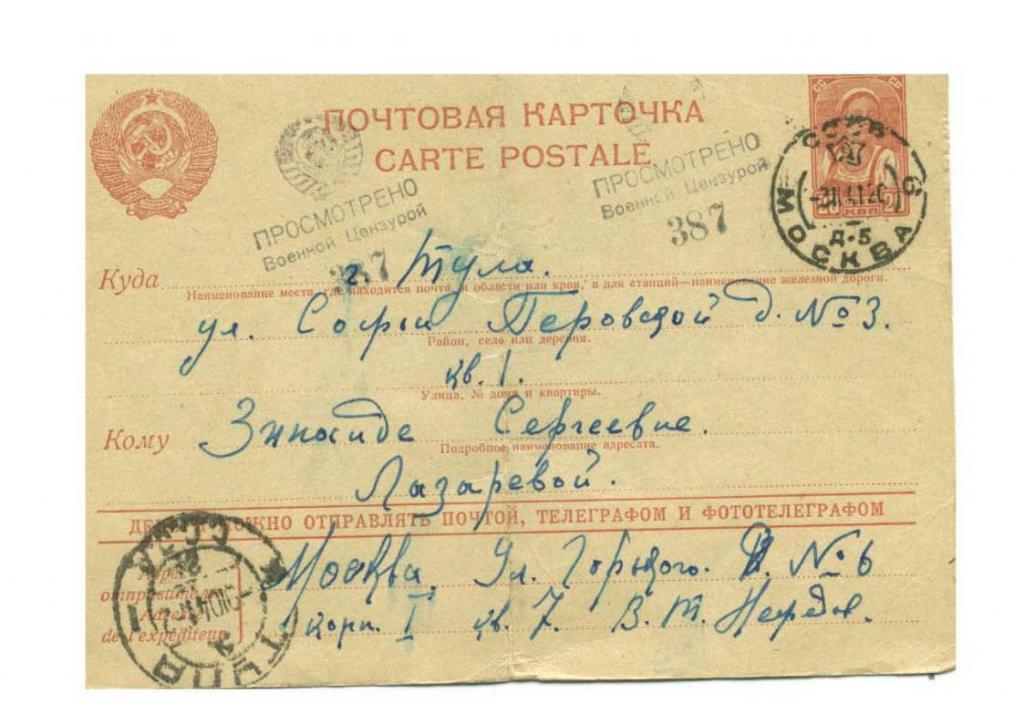 ПОЧТОВАЯ КАРТОЧКА
CARTE POSTALE
ПРОСМОТРЕНО
Военной Цензурой
387
ПРОСМОТРЕНО
Военной Цензурой
387
СССР
МОСКВА 9
Д-5
20 КОП 20
Куда г. Тула.
Наименование места, где находится почта, и области или края, а для станций—наименование железной дороги.
ул. Софьи Перовской д. №3.
Район, село или деревня.
кв. 1.
Улица, № дома и квартиры.
Кому Зинаиде Сергеевне.
Подробное наименование адресата.
Лазаревой.
МОЖНО ОТПРАВЛЯТЬ ПОЧТОЙ, ТЕЛЕГРАФОМ И ФОТОТЕЛЕГРАФОМ
Москва. Ул. Горького. Д. №6
отправителя
корп. I кв. 7. В. Т.
de l'expéditeur
СССР
ТУЛА